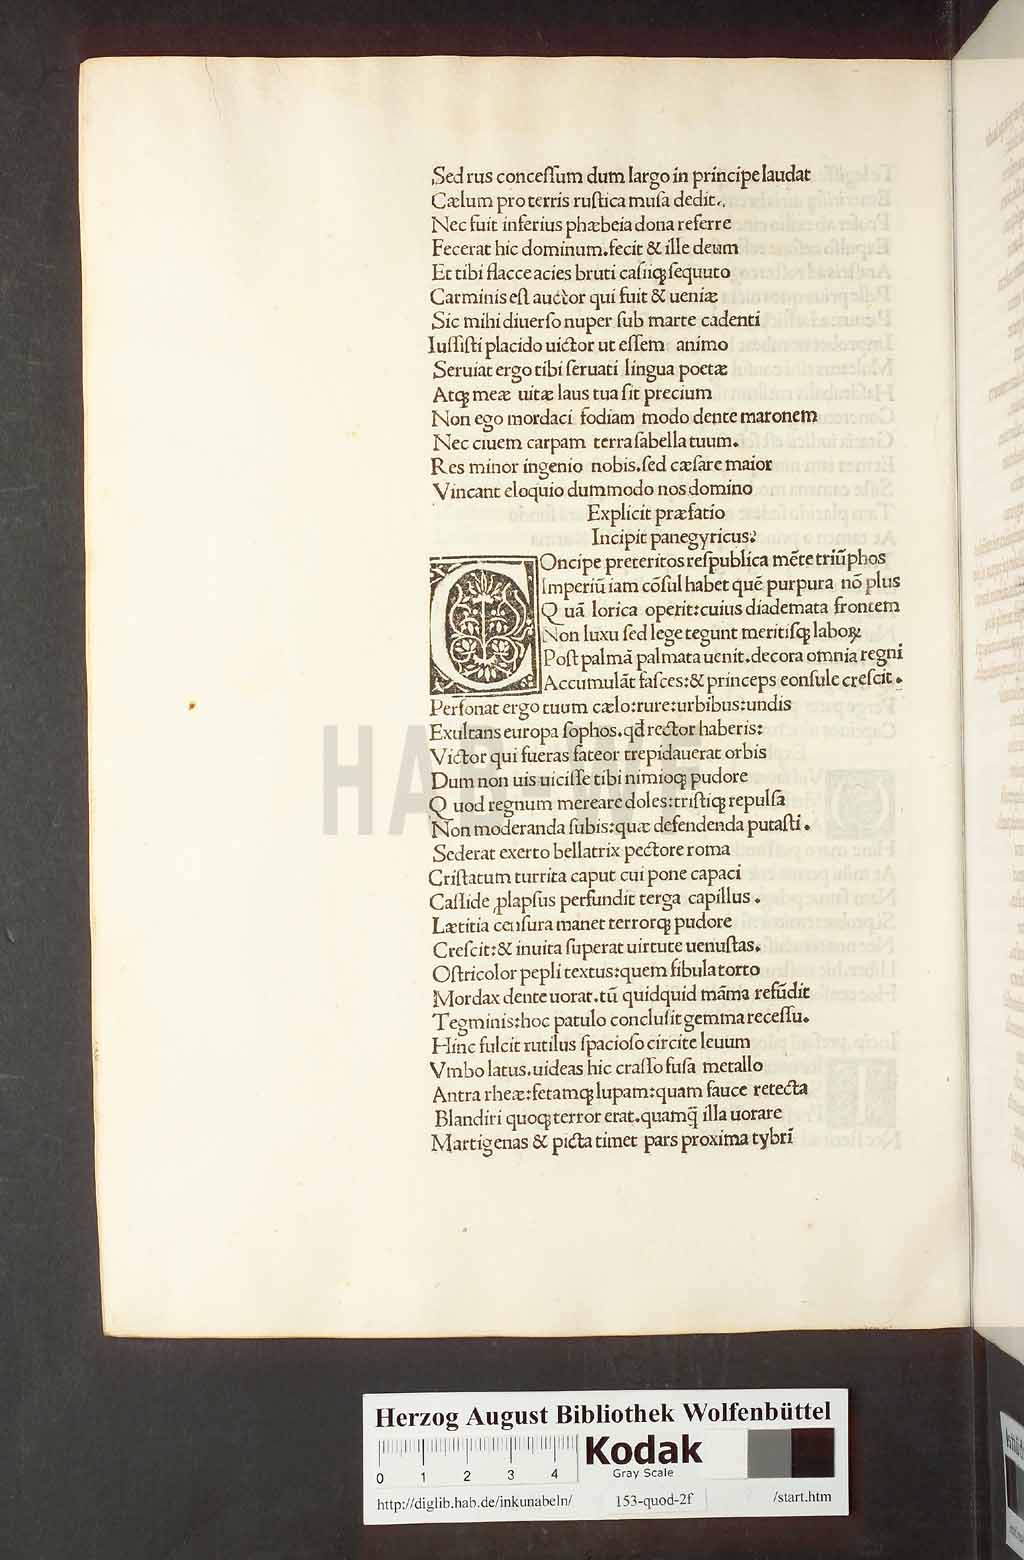 Sed rus conceſſum dum largo in principe laudat
Cælum pro terris ruſtica muſa dedit.
Nec fuit inferius phæbeia dona referre
Fecerat hic dominum.fecit & ille deum
Et tibi flacce acies bruti caſiiqꝫ ſequuto
Carminis eſt auctor qui fuit & ueniæ
Sic mihi diuerſo nuper ſub marte cadenti
Iuſſiſti placido uictor ut eſſem animo
Seruiat ergo tibi ſeruati lingua poetæ
Atqꝫ meæ uitæ laus tua ſit precium
Non ego mordaci fodiam modo dente maronem
Nec ciuem carpam terra ſabella tuum.
Res minor ingenio nobis.ſed cæſare maior
Vincant eloquio dummodo nos domino
Explicit præfatio
Incipit panegyricus:
COncipe preteritos reſpublica mēte triūphos
Imperiū iam cōſul habet quē purpura nō plus
Quā lorica operit:cuius diademata frontem
Non luxu ſed lege tegunt meritiſqꝫ laboꝝ
Poſt palmā palmata uenit.decora omnia regni
Accumulāt faſces:& princeps eonſule creſcit.
Perſonat ergo tuum cælo:rure:urbibus:undis
Exultans europa ſophos.qđ rector haberis:
Victor qui fueras fateor trepidauerat orbis
Dum non uis uiciſſe tibi nimioqꝫ pudore
Quod regnum mereare doles:triſtiqꝫ repulſa
Non moderanda ſubis:quæ defendenda putaſti.
Sederat exerto bellatrix pectore roma
Criſtatum turrita caput cui pone capaci
Caſſide ꝓlapſus perfundit terga capillus.
Lætitia cenſura manet terrorqꝫ pudore
Creſcit:& inuita ſuperat uirtute uenuſtas.
Oſtricolor pepli textus:quem fibula torto
Mordax dente uorat.tū quidquid māma refūdit
Tegminis:hoc patulo concluſit gemma receſſu.
Hinc fulcit rutilus ſpacioſo circite leuum
Vmbo latus.uideas hic craſſo fuſa metallo
Antra rheæ:fetamqꝫ lupam:quam fauce retecta
Blandiri quoqꝫ terror erat.quamq̄ illa uorare
Martigenas & picta timet pars proxima tybrī
HAB-WF
Herzog August Bibliothek Wolfenbüttel
0 1 2 3 4
Kodak
Gray Scale
http://diglib.hab.de/inkunabeln/ 153-quod-2f /start.htm